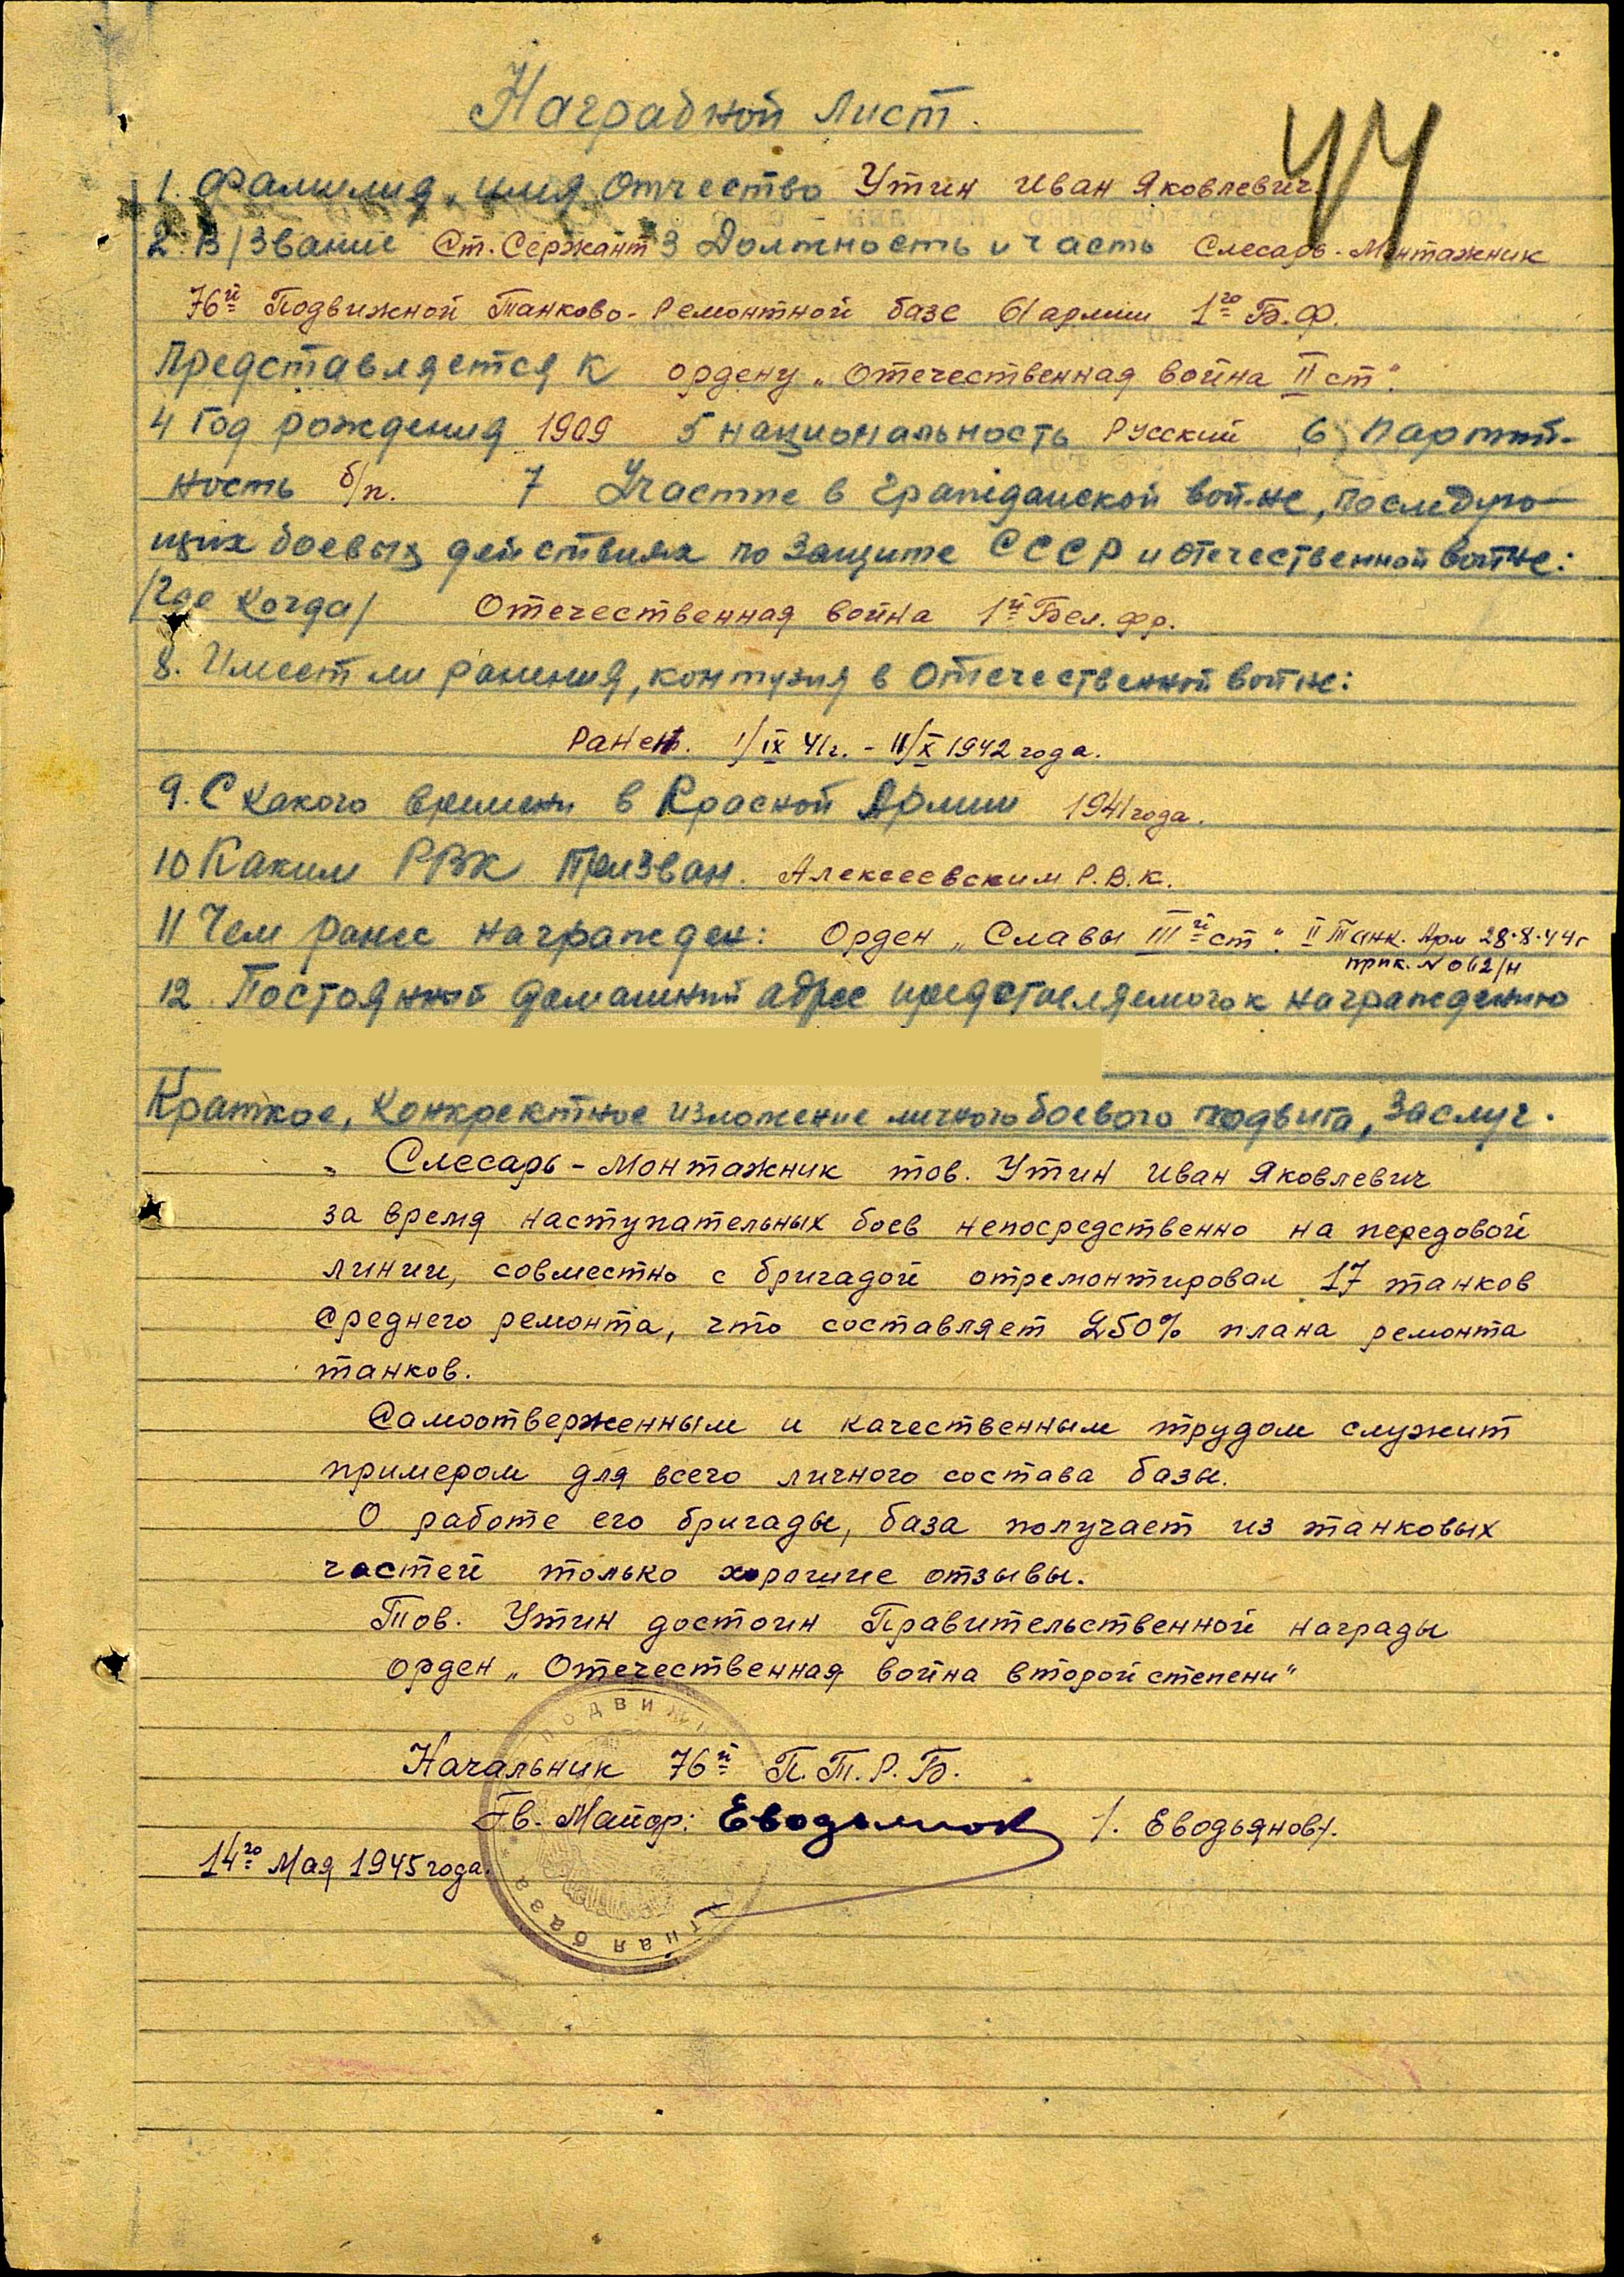 Наградной лист.
44
1. Фамилия, имя отчество Утин Иван Яковлевич.
2. В/Звание Ст. Сержант 3 Должность и часть Слесарь-Монтажник
76й Подвижной Танково-Ремонтной базе 61 армии 1го Б.Ф.
Представляется к ордену „Отечественная война II ст".
4 Год рождения 1909 5 национальность Русский 6 партий-
ность б/п. 7 Участие в гражданской войне, последую-
щих боевых действиях по защите СССР и отечественной войне:
/где когда/ Отечественная война 1й Бел. фр.
8. Имеет ли ранения, контузия в отечественной войне:
Ранен. 1/IX 41г. - 11/X 1942 года.
9. С какого времени в Красной Армии 1941 года.
10 Каким РВК Призван. Алексеевским Р.В.К.
11 Чем ранее награжден: Орден „Славы IIIй ст". II Танк. Арм 28.8.44г
прик. № 062/н
12. Постоянной домашний адрес представляемого к награждению
Краткое, конкректное изложение личного боевого подвига, заслуг.
„ Слесарь-Монтажник тов. Утин Иван Яковлевич
за время наступательных боев непосредственно на передовой
линии, совместно с бригадой отремонтировал 17 танков
среднего ремонта, что составляет 250% плана ремонта
танков.
Самоотверженным и качественным трудом служит
примером для всего личного состава базы.
О работе его бригады, база получает из танковых
частей только хорошие отзывы.
Тов. Утин достоин Правительственной награды
орден „Отечественная война второй степени"
Начальник 76й П.Т.Р.Б.
Гв. Майор: Еводьянов /. Еводьянов/.
14го Мая 1945 года.